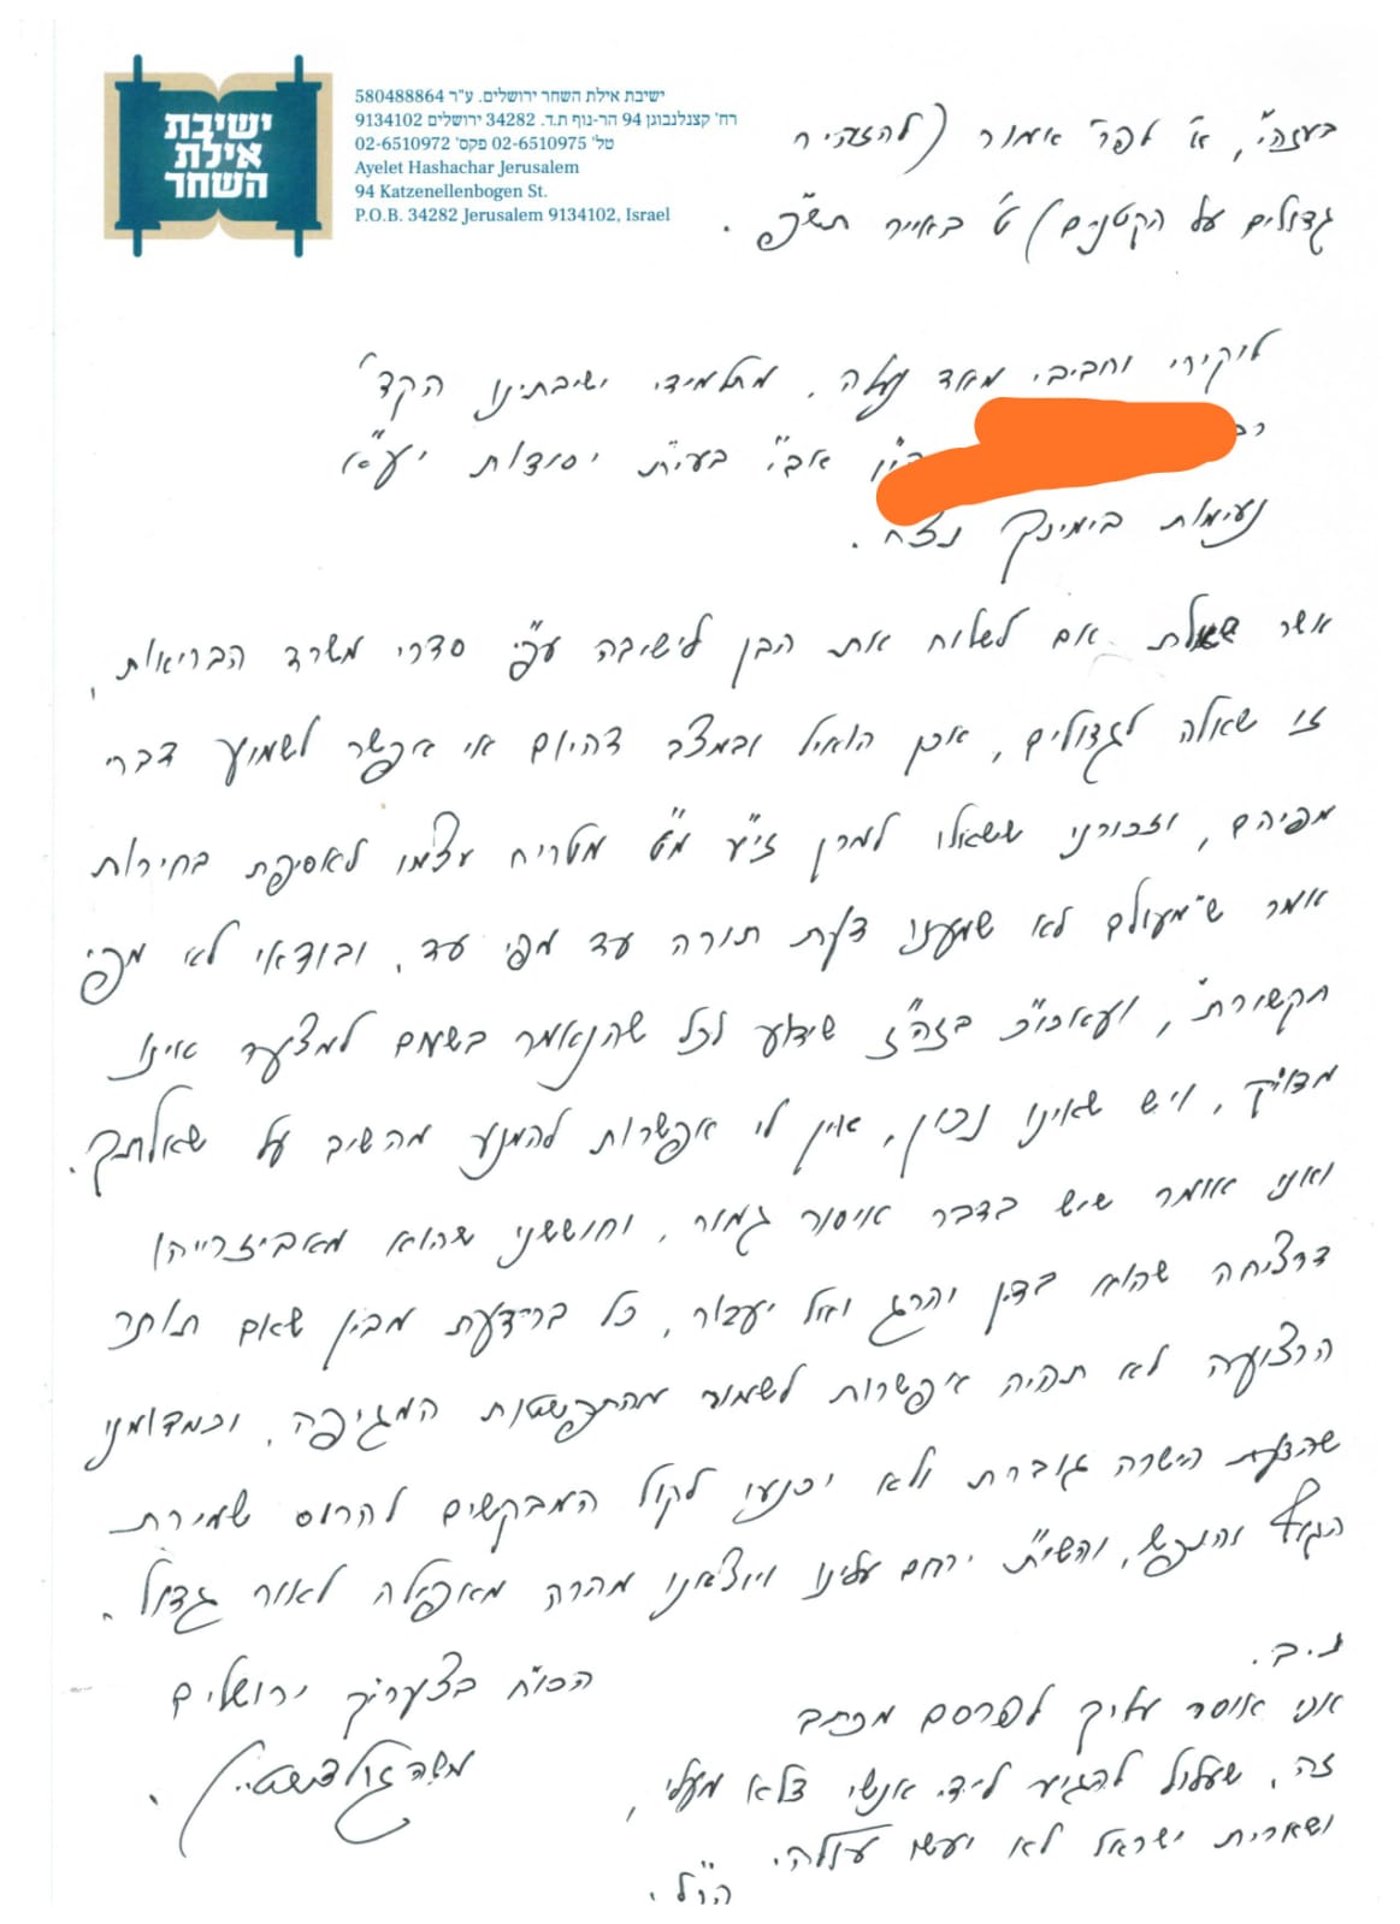 ישיבת
אילת
השחר
ישיבת אילת השחר ירושלים. ע"ר 580488864
רח' קצנלנבוגן 94 הר-נוף ת.ד. 34282 ירושלים 9134102
טל' 02-6510975 פקס' 02-6510972
Ayelet Hashachar Jerusalem
94 Katzenellenbogen St.
P.O.B. 34282 Jerusalem 9134102, Israel
בעזהי", א' לפר' אמור (להזהיר
גדולים על הקטנים) ט' באייר תש"פ.
ליקירי וחביבי מאד נעלה, מתלמידי ישיבתינו הקד'
הי"ו אב"י בעי"ת יסודות יע"א
נעימות בימינך נצח.
אשר שאלת אם לשלוח את הבן לישיבה עפ"י סדרי משרד הבריאות,
זו שאלה לגדולים, אכן הואיל ובמצב דהיום אי אפשר לשמוע דברי
מפיהם, וזכורני ששאלו למרן זי"ע מ"ט מטריח עצמו לאסיפת בחירות
אמר ש"מעולם לא שמענו דעת תורה עד מפי עד, ובודאי לא מפי
תקשורת", ועאכו"כ בזה"ז שידוע לכל שהנאמר בשמם למצער אינו
מדוייק, ויש שאינו נכון, אין לי אפשרות להמנע מהשיב על שאלתך.
ואני אומר שיש בדבר איסור גמור, וחוששני שהוא מאביזרייהו
דרציחה שהוא בדין יהרג ואל יעבור, כל בר-דעת מבין שאם תותר
הרצועה לא תהיה אפשרות לשמור מהתפשטות המגיפה, וכמדומני
שהדעת הישרה גוברת ולא יכנעו לקול המבקשים להרוס שמירת
הגוף והנפש, והשי"ת ירחם עלינו ויוצאנו מהרה מאפילה לאור גדול.
הכו"ח בצעריך ירושלים
נ.ב.
אני אוסר עליך לפרסם מכתב
זה, שעלול להגיע לידי אנשי דלא מעלי,
ושארית ישראל לא יעשו עולה.
הנ"ל.